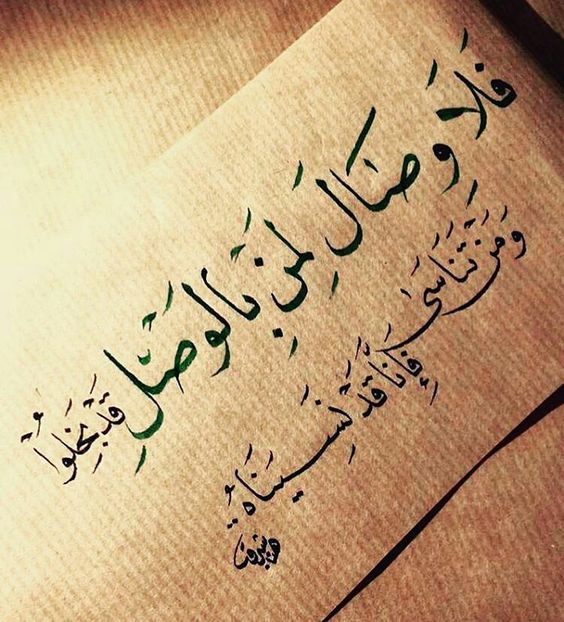 فَلَا وِصَالَ لِمَنْ بِالوَصْلِ قَدْ بَخِلُوا
وَمَنْ تَنَاسَى فَإِنَّا قَدْ نَسِينَاهُ